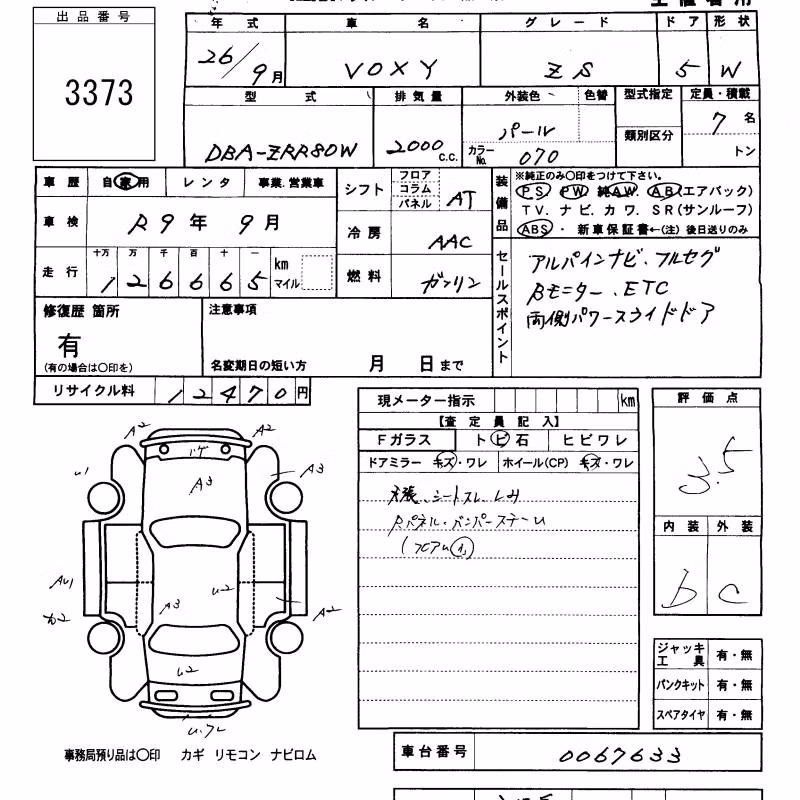 出品番号
3373
年式 車名 グレード ドア 形状
26/9月 VOXY ZS 5 W
型式 排気量 外装色 色替 型式指定 定員・積載
DBA-ZRR80W 2000c.c. パール 類別区分 7名
カラーNo. 070 トン
車歴 自家用 レンタ 事業.営業車
車検 R9年 9月
走行 十万 万 千 百 十 一
126665 km マイル
シフト フロア コラム パネル AT
冷房 AAC
燃料 ガソリン
装備品
※純正のみ○印をつけて下さい。
PS PW 純AW. AB(エアバック)
TV. ナビ. カワ. SR(サンルーフ)
ABS・ 新車保証書←(注) 後日送りのみ
セールスポイント
アルパインナビ、フルセグ
Bモニター、ETC
両側パワースライドドア
修復歴 箇所
有
(有の場合は○印を)
注意事項
名変期日の短い方 月 日まで
リサイクル料 12470円
現メーター指示 km
【査定員記入】
Fガラス トビ石 ヒビワレ
ドアミラー キズ・ワレ ホイール(CP) キズ・ワレ
天張、シートスレ、シミ
Rパネル・バンパーステーU
評価点
3.5
内装 外装
b c
A2 A2
ハゲ
U1 A3
A3
AU1 A3 U2 A2
カ2
U2
U.ワレ
ジャッキ工具 有・無
パンクキット 有・無
スペアタイヤ 有・無
事務局預り品は○印 カギ リモコン ナビロム
車台番号 0067633